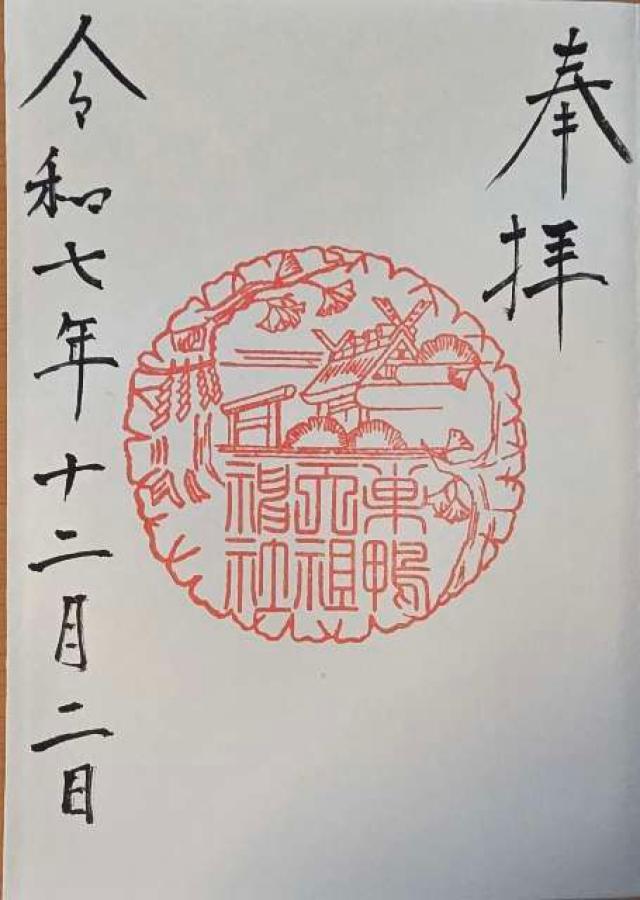 奉拝
巣鴨
天祖
神社
令和七年十二月二日